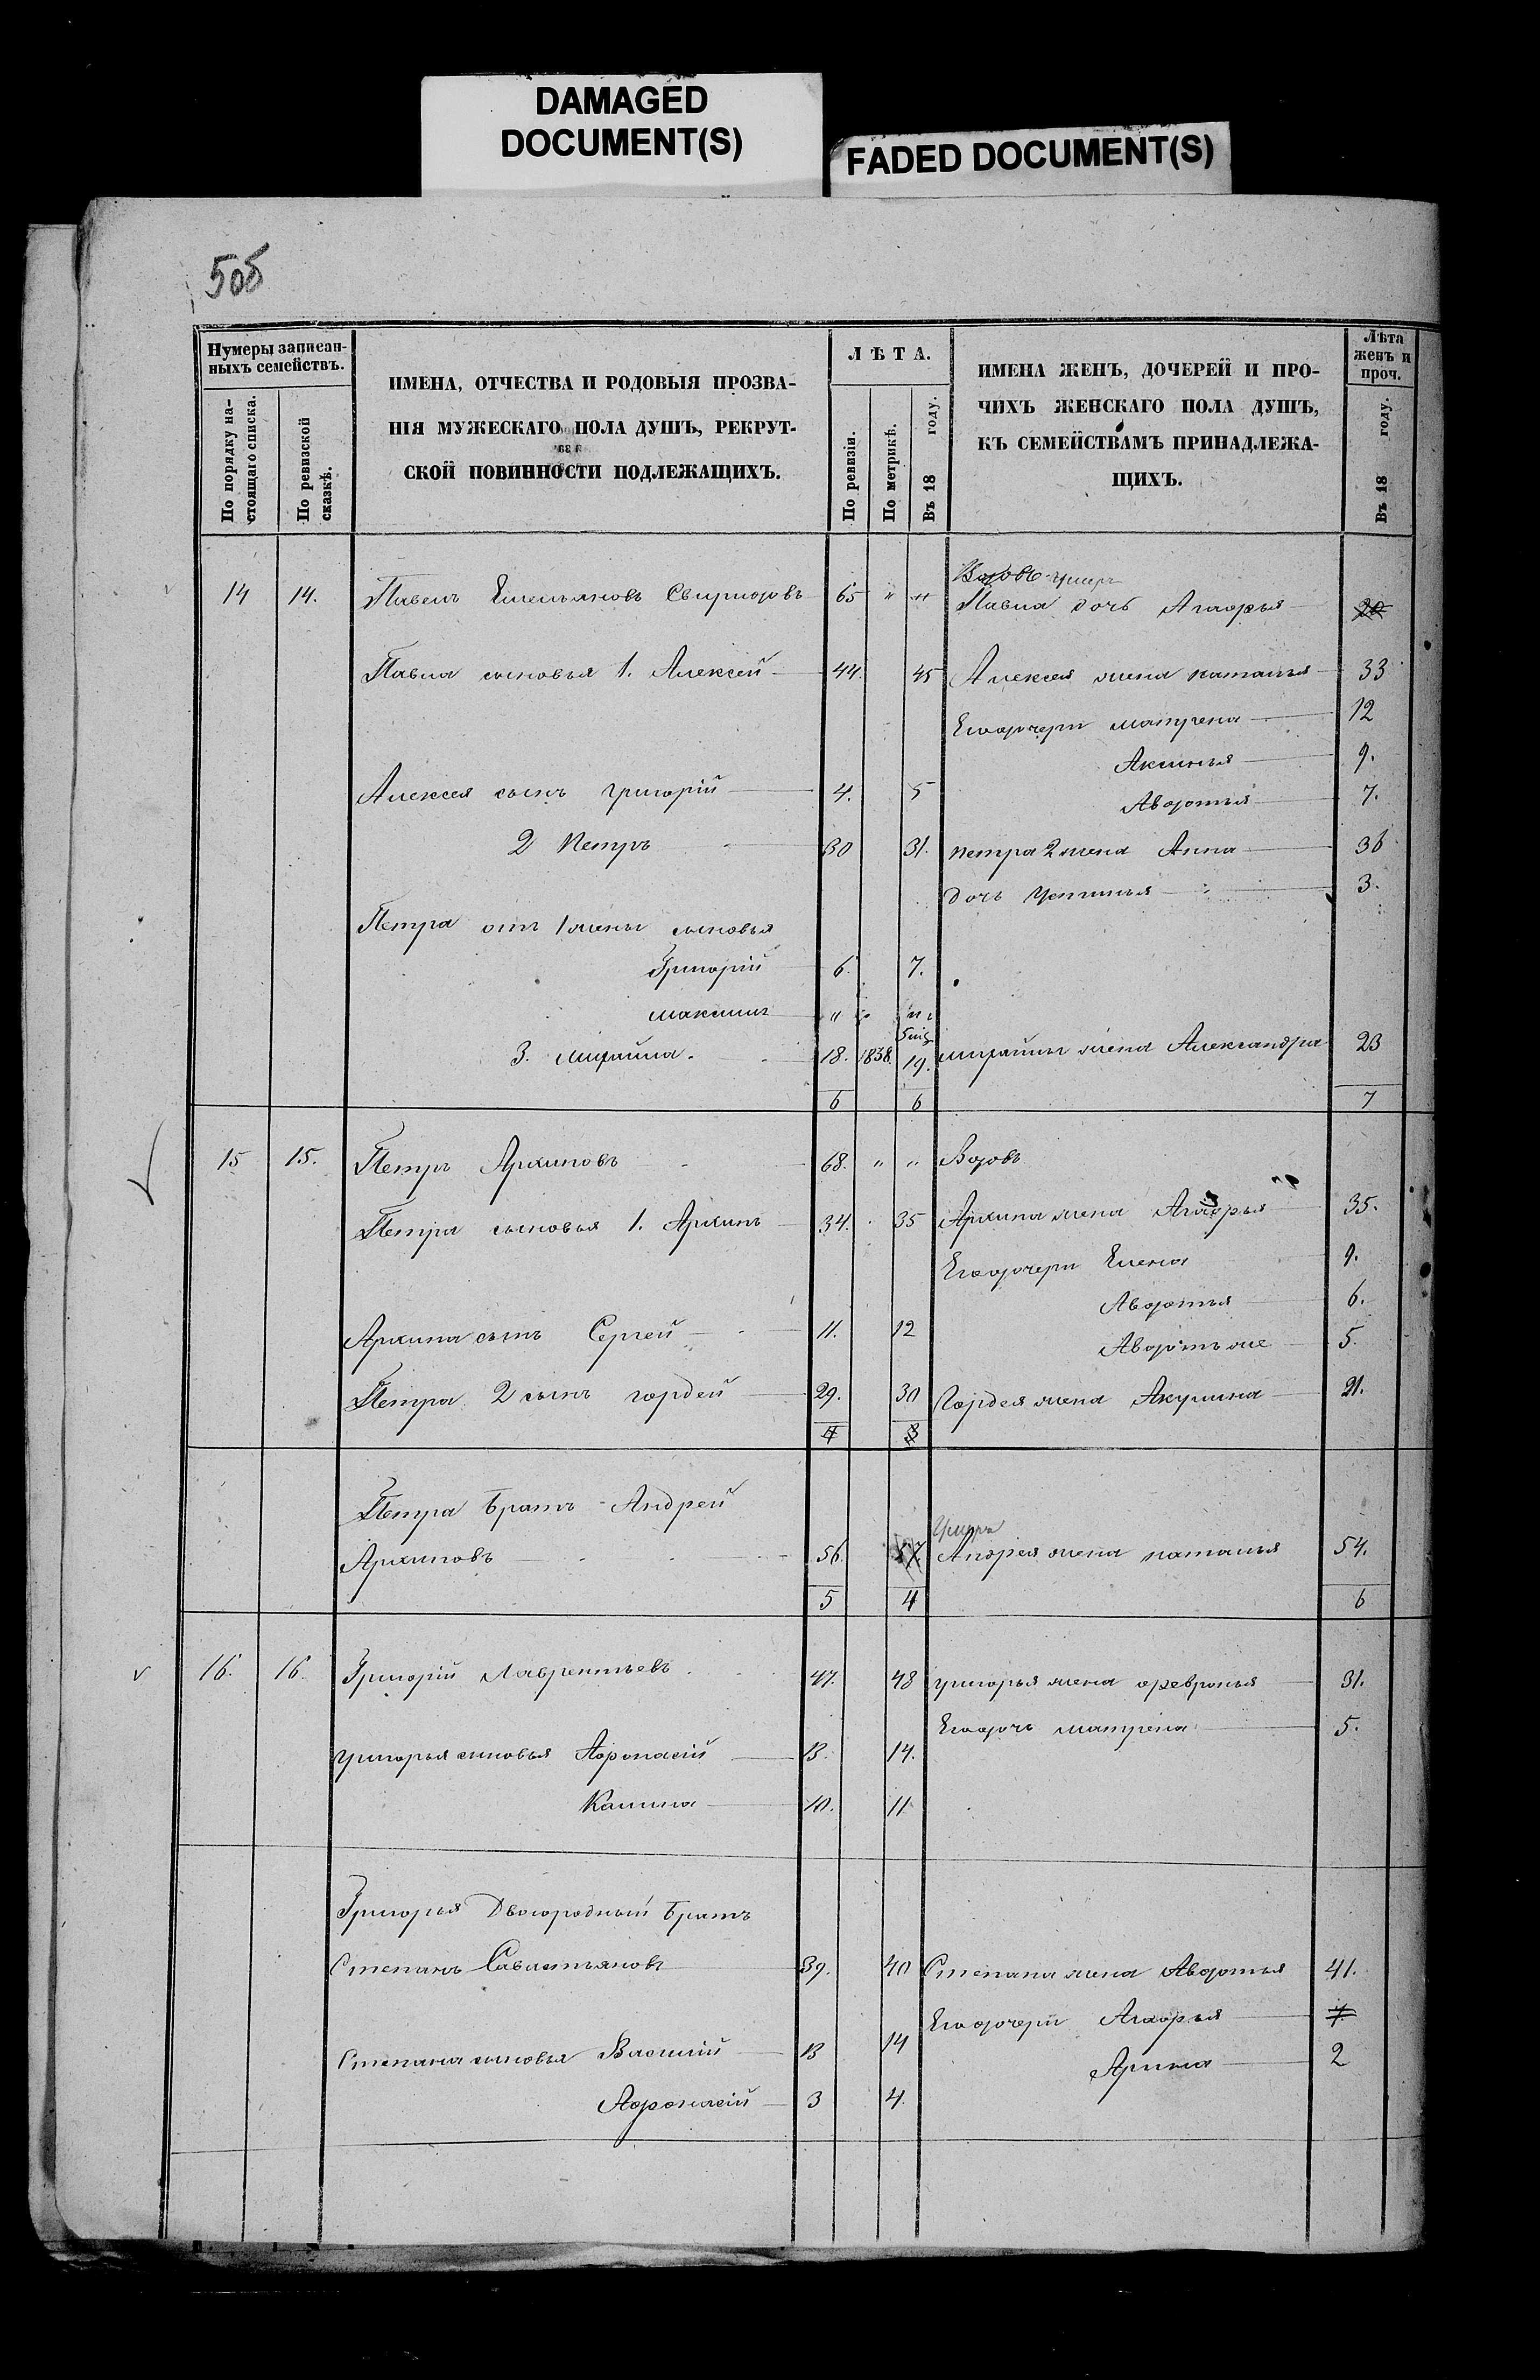 DAMAGED
DOCUMENT(S)
FADED DOCUMENT(S)
506
Нумеры записан-
ныхъ семействъ.
По порядку на-
стоящаго списка.
По ревизской
сказкѣ.
ИМЕНА, ОТЧЕСТВА И РОДОВЫЯ ПРОЗВА-
НІЯ МУЖЕСКАГО ПОЛА ДУШЪ, РЕКРУТ-
СКОЙ ПОВИННОСТИ ПОДЛЕЖАЩИХЪ.
ЛѢТА.
По ревизіи.
По метрикѣ.
Въ 18 году.
ИМЕНА ЖЕНЪ, ДОЧЕРЕЙ И ПРО-
ЧИХЪ ЖЕНСКАГО ПОЛА ДУШЪ,
КЪ СЕМЕЙСТВАМЪ ПРИНАДЛЕЖА-
ЩИХЪ.
Лѣта
женъ и
проч.
Въ 18 году.
Вдовъ умеръ
14 14. Павелъ Емельяновъ 65 " " Павла дочь Агафья 20
Павла сыновья 1. Алексей 44. 45 Алексея жена наталья 33
Егодочери матрена 12
Аксинья 9.
Алексея сынъ григорій 4. 5 Авдотья 7.
2 Петръ 30 31. петра 2 жена Анна 36
дочь Устинья 3.
Петра отъ 1 жены сыновья
Григорій 6. 7.
максимъ " "
5 мѣс.
3. 18. 1838. 19. жена Александра 23
6 6 7
15 15. Петръ Архиповъ 68. " " Вдовъ
Петра сыновья 1. Архипъ 34. 35 Архипа жена Агафья 35.
Егодочери Елена 9.
Авдотья 6.
Архипа сынъ Сергей 11. 12 Авдотья же 5.
Петра 2 сынъ гордей 29. 30 Гордея жена Акулина 21.
4 3
Петра братъ Андрей
Умеръ
Архиповъ 56. 57. Андрея жена наталья 54.
5 4 6
16. 16. Григорій Лаврентьевъ 47. 48 григорья жена февронья 31.
Егодочь матрена 5.
григорья сыновья Афонасій 13. 14.
Калина 10. 11
Григорья Двоюродный братъ
Степанъ Савастьяновъ 39. 40 Степана жена Авдотья 41.
Егодочери Агафья 7.
Степана сыновья Василій 13 14
Арина 2
Афонасій 3 4.